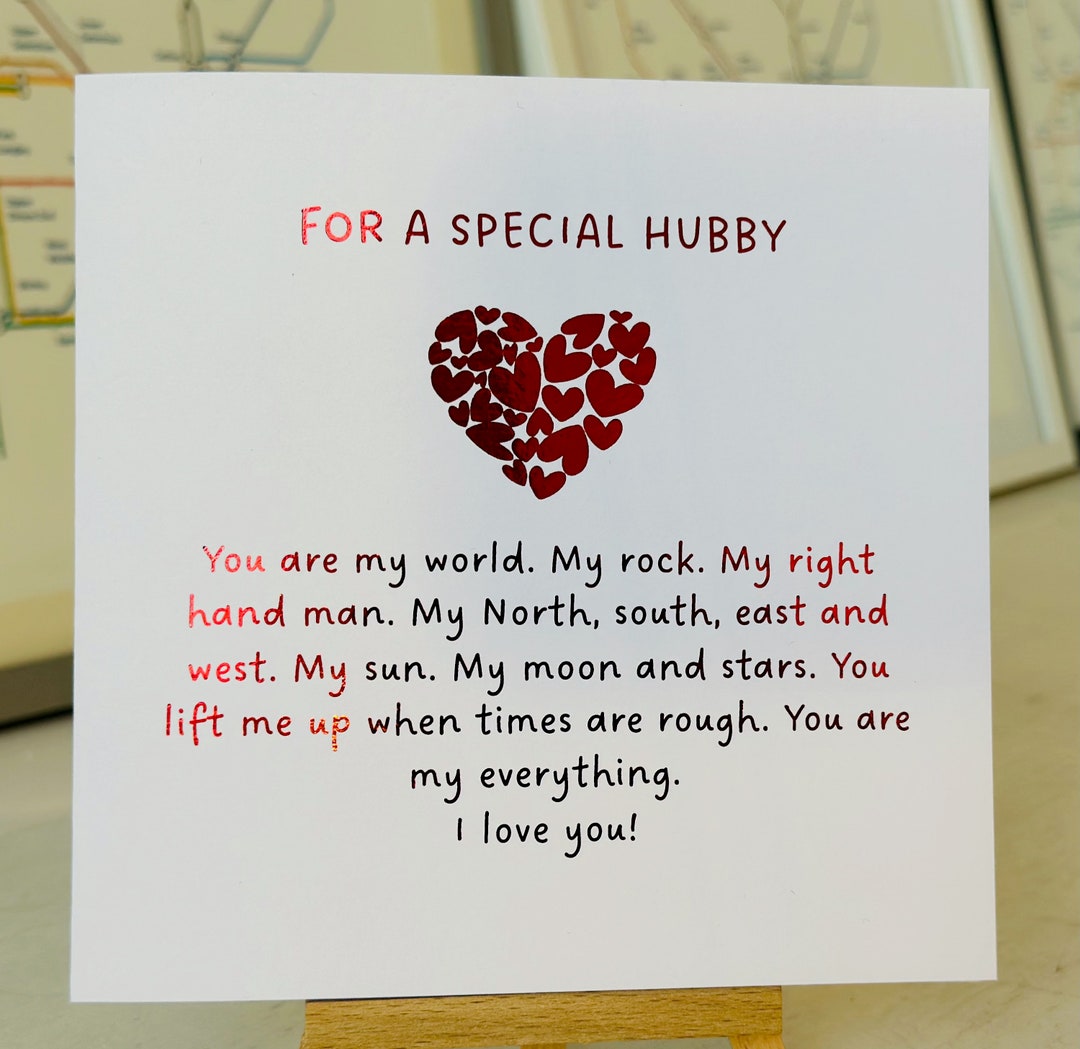 FOR A SPECIAL HUBBY
You are my world. My rock. My right
hand man. My North, south, east and
west. My sun. My moon and stars. You
lift me up when times are rough. You are
my everything.
I love you!